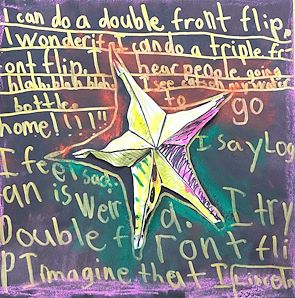 I can do a double front flip,
I wonder if I can do a triple fr
ont flip, I hear people going
blah, blah, blah I see my water
bottle. to go
home!!!!"
I say Log
I feel sad.
an is weird. I try
Double front fli
P I magine that I